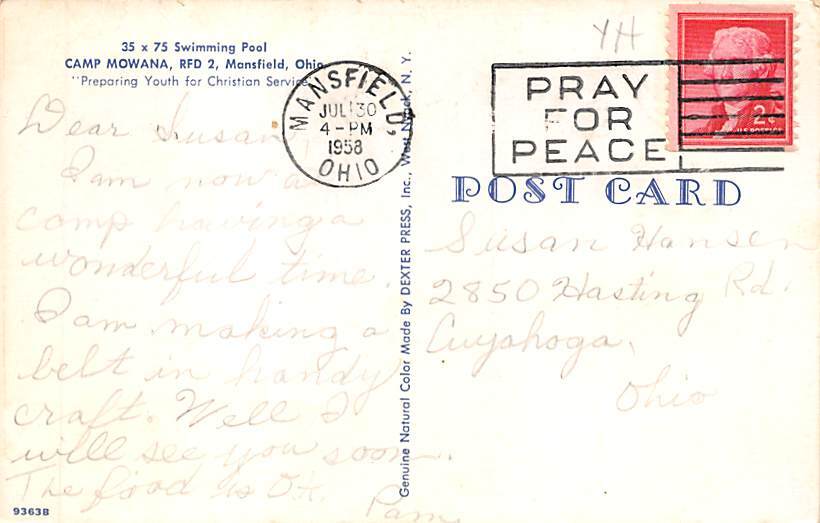 35 x 75 Swimming Pool
CAMP MOWANA, RFD 2, Mansfield, Ohio
"Preparing Youth for Christian Service
Dear Susan,
I am now at
camp having a
wonderful time.
I am making a
belt in handy
craft. Well I
will see you soon.
The food is OK.
Pam
9363B
Genuine Natural Color Made By DEXTER PRESS, Inc., West Nyack, N. Y.
MANSFIELD,
JUL 30
4-PM
1958
OHIO
YH
PRAY
FOR
PEACE
2¢
POST CARD
Susan Hansen
2850 Hasting Rd.
Cuyahoga,
Ohio